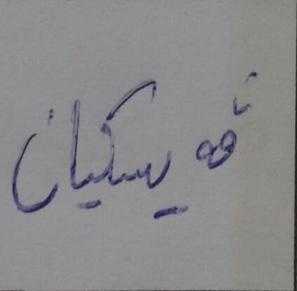 قەیسکیان